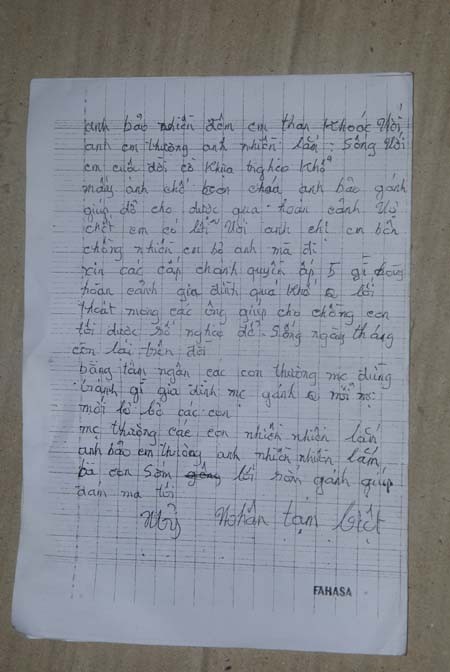 anh bảo nhiền đêm em than khoác với
anh em thường anh nhiền lắn: sống với
em cuối đời cò khũa nghèo khổ
mấy anh chế con cháu anh bảo gánh
giúp đỡ cho được qua hoàn cảnh vợ
chết em có lỗi với anh chi em bên
chồng nhiền em bỏ anh mà đi
xin các cấp chánh quyền ấp 5 gì
hoàn cảnh gia đình quá khổ lối
thoát mong các ông giúp cho chồng con
tôi được sổ nghèo để sống ngày tháng
còn lai trên đời
băng tâm ngân các con thường mẹ đừng
tranh gì gia đình mẹ gánh mõi mẹ
mới lo bỏ các con
mẹ thường các con nhiền nhiền lắn
anh bảo em thường anh nhiền nhiền lắm
bà con sớm lối xóm gánh giúp
đám ma tôi
Mỹ Nhân tạm biệt
FAHASA